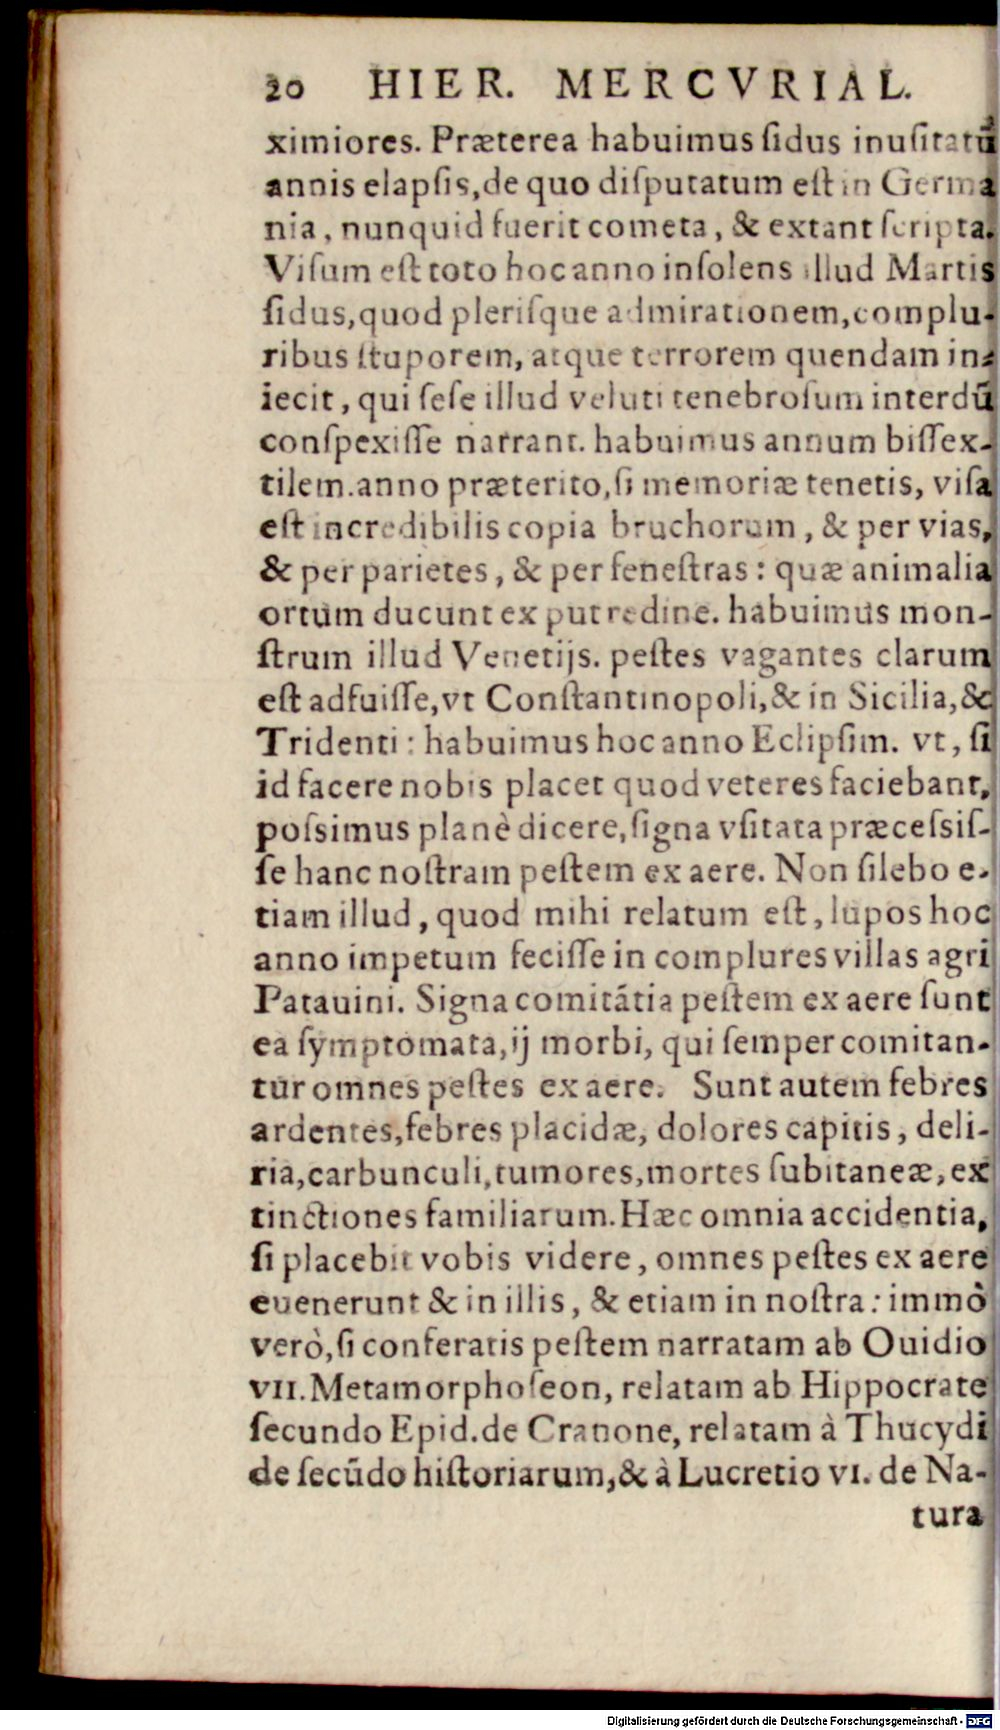 20 HIER. MERCVRIAL.
ximiores. Præterea habuimus ſidus inuſitatũ
annis elapſis, de quo diſputatum eſt in Germa
nia, nunquid fuerit cometa, & extant ſcripta.
Viſum eſt toto hoc anno inſolens illud Martis
ſidus, quod pleriſque admirationem, complu-
ribus ſtuporem, atque terrorem quendam in-
iecit, qui ſeſe illud veluti tenebroſum interdũ
conſpexiſſe narrant. habuimus annum biſſex-
tilem. anno præterito, ſi memoriæ tenetis, viſa
eſt incredibilis copia bruchorum, & per vias,
& per parietes, & per feneſtras: quæ animalia
ortum ducunt ex putredine. habuimus mon-
ſtrum illud Venetijs. peſtes vagantes clarum
eſt adfuiſſe, vt Conſtantinopoli, & in Sicilia, &
Tridenti: habuimus hoc anno Eclipſim. vt, ſi
id facere nobis placet quod veteres faciebant,
poſsimus planè dicere, ſigna vſitata præceſsiſ-
ſe hanc noſtram peſtem ex aere. Non ſilebo e-
tiam illud, quod mihi relatum eſt, lupos hoc
anno impetum feciſſe in complures villas agri
Patauini. Signa comitãtia peſtem ex aere ſunt
ea ſymptomata, ij morbi, qui ſemper comitan-
tur omnes peſtes ex aere. Sunt autem febres
ardentes, febres placidæ, dolores capitis, deli-
ria, carbunculi, tumores, mortes ſubitaneæ, ex
tinctiones familiarum. Hæc omnia accidentia,
ſi placebit vobis videre, omnes peſtes ex aere
euenerunt & in illis, & etiam in noſtra: immò
verò, ſi conferatis peſtem narratam ab Ouidio
VII. Metamorphoſeon, relatam ab Hippocrate
ſecundo Epid. de Cranone, relatam à Thucydi
de ſecũdo hiſtoriarum, & à Lucretio VI. de Na-
tura
Digitalisierung gefördert durch die Deutsche Forschungsgemeinschaft - DFG